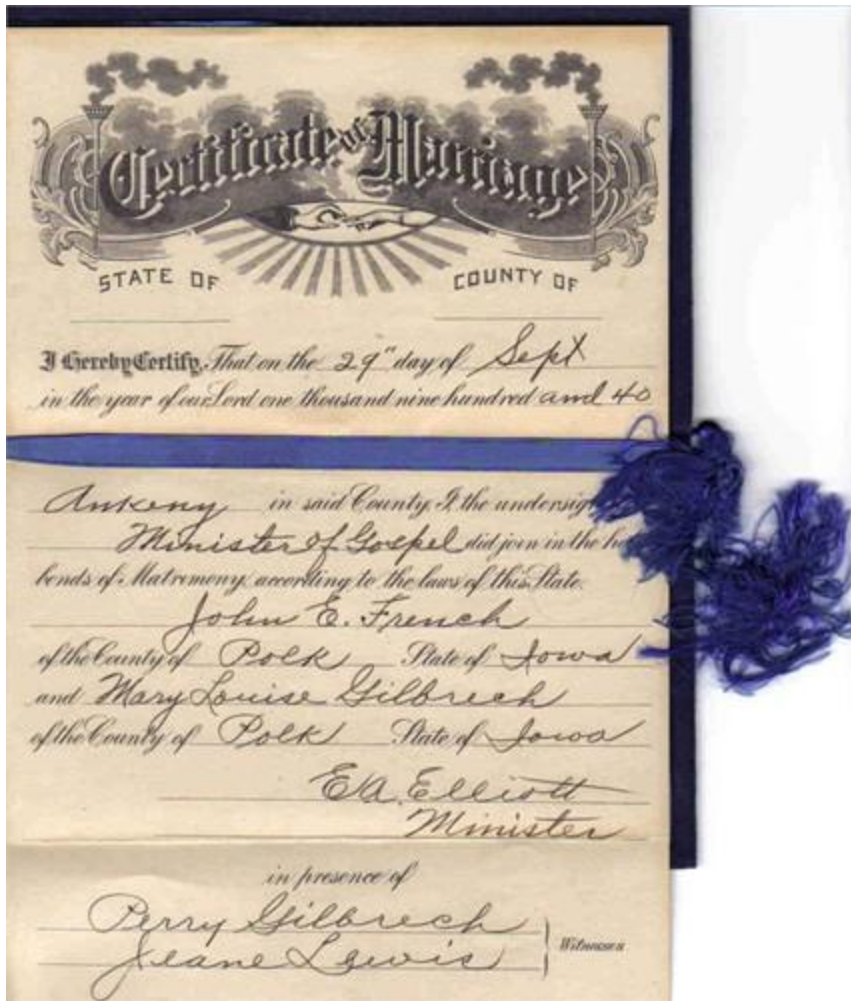 Certificate of Marriage
STATE OF COUNTY OF
I Hereby Certify, That on the 29" day of Sept
in the year of our Lord one thousand nine hundred and 40
Ankeny in said County, I, the undersig
Minister of Gospel did join in the ho
bonds of Matrimony, according to the laws of this State.
John E. French
of the County of Polk State of Iowa
and Mary Louise Gilbrech
of the County of Polk State of Iowa
E.A. Elliott
Minister
in presence of
Perry Gilbrech
Jeane Lewis
Witnesses